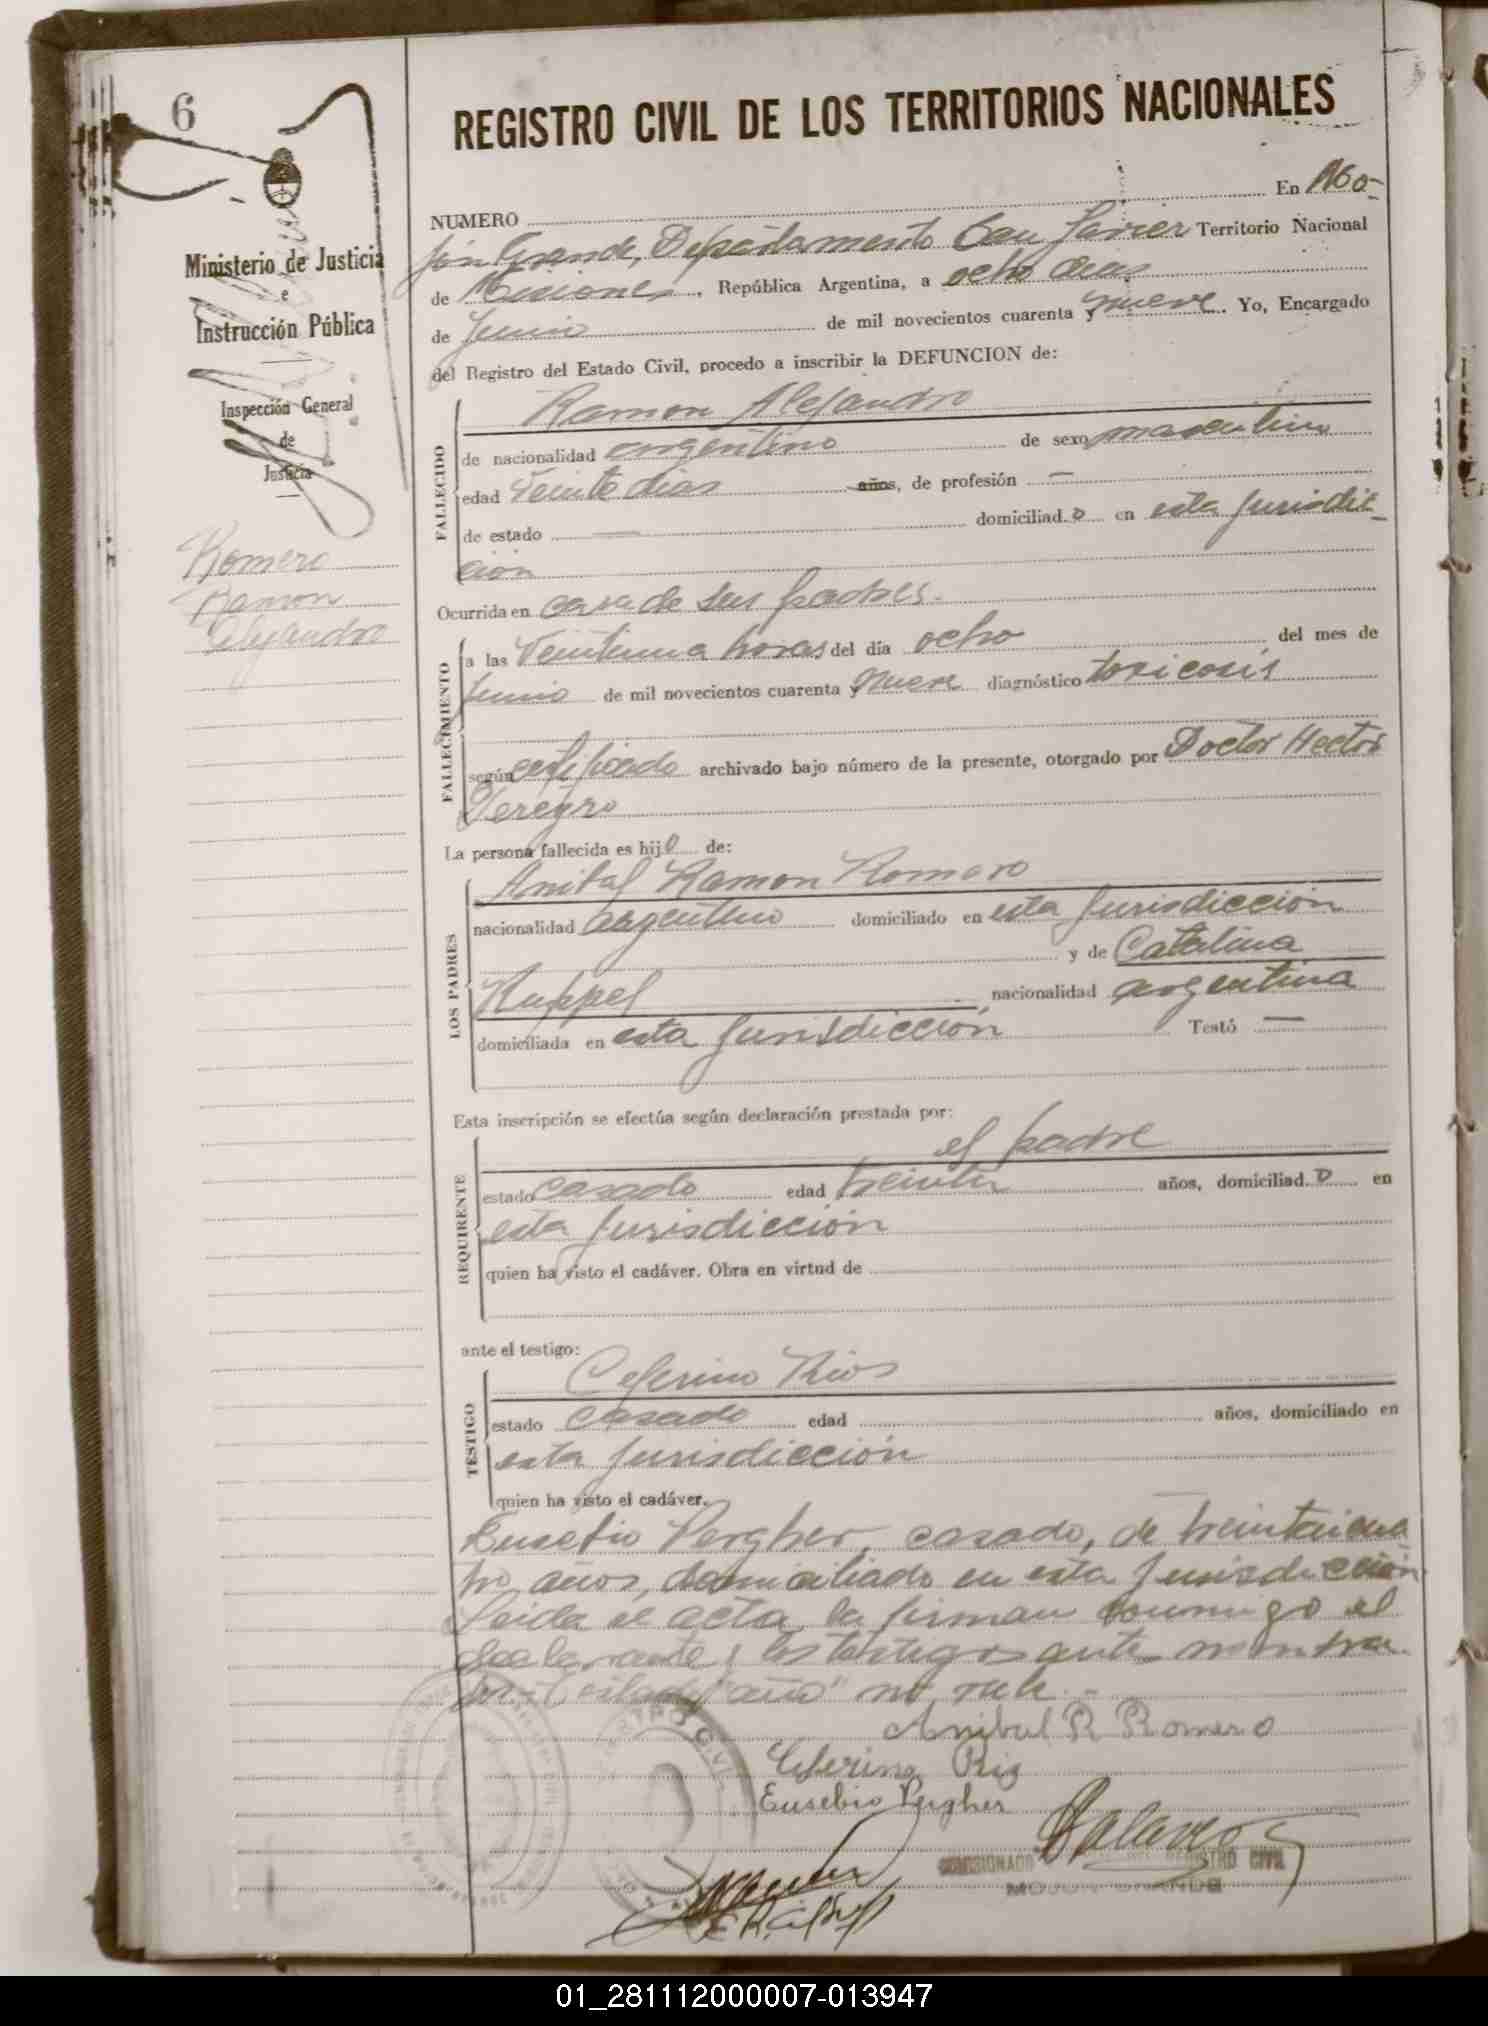 6
Ministerio de Justicia
e
Instrucción Pública
Inspección General
de
Justicia
Romero
Ramon
Alejandro
REGISTRO CIVIL DE LOS TERRITORIOS NACIONALES
NUMERO En Mo-
jón Grande, Departamento San Javier Territorio Nacional
de Misiones, República Argentina, a ocho dias
de Junio de mil novecientos cuarenta y nueve. Yo, Encargado
del Registro del Estado Civil, procedo a inscribir la DEFUNCION de:
FALLECIDO
Ramon Alejandro
de nacionalidad argentino de sexo masculino
edad Veinte dias años, de profesión —
de estado — domiciliad o en esta Jurisdic-
ción
Ocurrida en casa de sus padres.
FALLECIMIENTO
a las Veintiuna horas del día ocho del mes de
Junio de mil novecientos cuarenta y nueve diagnóstico toxicosis
según certificado archivado bajo número de la presente, otorgado por Doctor Hector
La persona fallecida es hijo de:
LOS PADRES
Anibal Ramon Romero
nacionalidad argentino domiciliado en esta Jurisdicción
y de Catalina
Kuppel nacionalidad argentina
domiciliada en esta Jurisdicción Testó —
Esta inscripción se efectúa según declaración prestada por:
REQUIRENTE
el padre
estado casado edad treinta años, domiciliad o en
esta Jurisdicción
quien ha visto el cadáver. Obra en virtud de
ante el testigo:
TESTIGO
Ceferino Rios
estado casado edad años, domiciliado en
esta Jurisdicción
quien ha visto el cadáver.
Eusebio Pergher, casado, de treintaicua
tro años, domiciliado en esta Jurisdicción
Leida el acta, la firman conmigo el
declarante y los testigos ante
"año" no vale.-
Anibal R Romero
Ceferino Rios
Eusebio Pergher
REGISTRO CIVIL
MOJON GRANDE
01_281112000007-013947